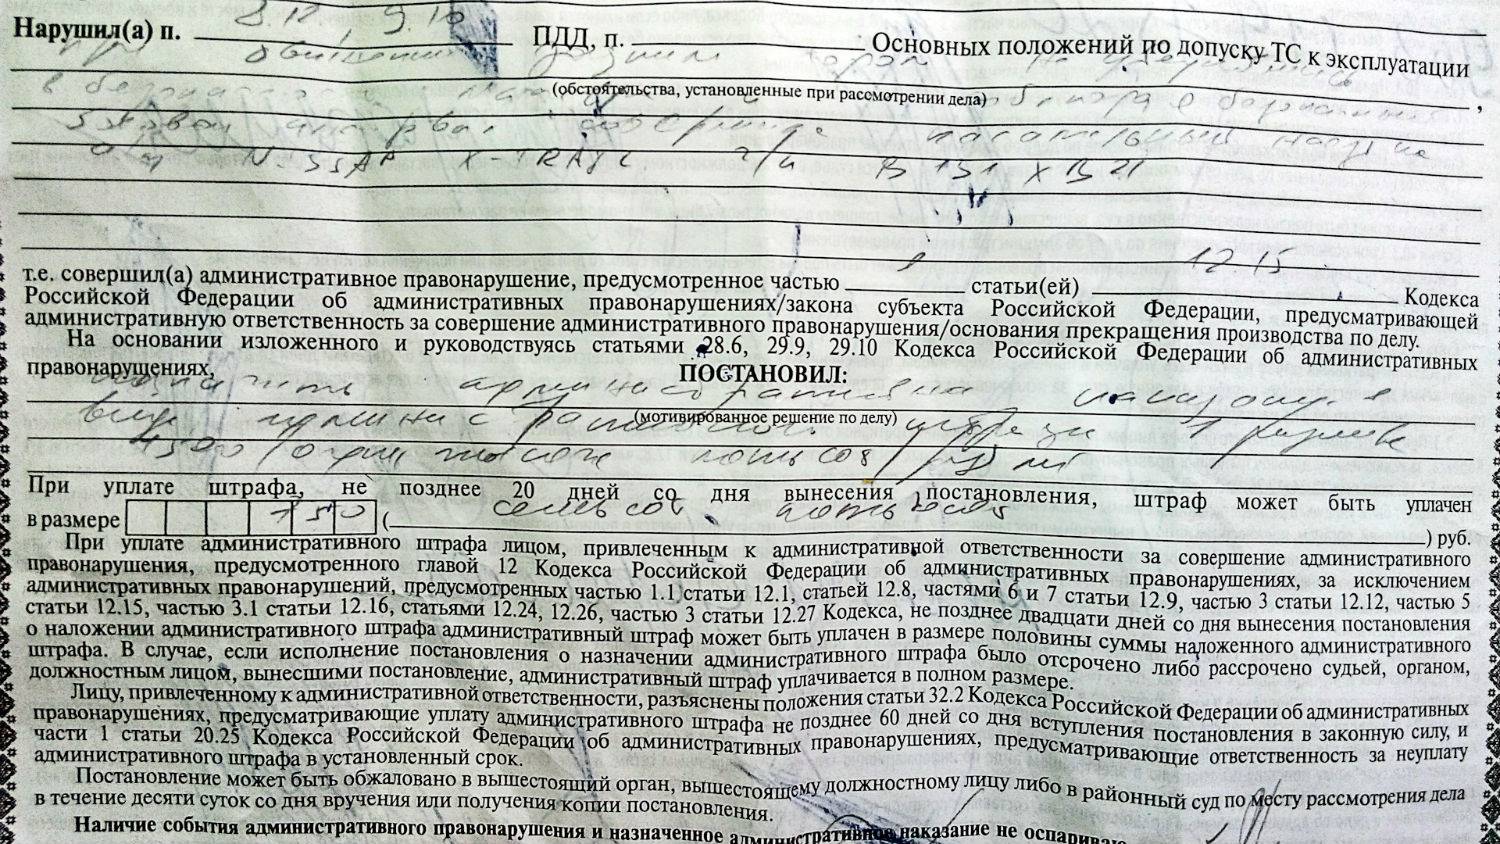 8.12, 9.10
Нарушил(а) п. ПДД, п. Основных положений по допуску ТС к эксплуатации
(обстоятельства, установленные при рассмотрении дела) ,
а/м NISSAN X-TRAIL г/н В 131 ХВ 21
1 12.15
т.е. совершил(а) административное правонарушение, предусмотренное частью статьи(ей) Кодекса
Российской Федерации об административных правонарушениях/закона субъекта Российской Федерации, предусматривающей
административную ответственность за совершение административного правонарушения/основания прекращения производства по делу.
На основании изложенного и руководствуясь статьями 28.6, 29.9, 29.10 Кодекса Российской Федерации об административных
правонарушениях, ПОСТАНОВИЛ:
назначить административное наказание в
(мотивированное решение по делу)
виде административного штрафа в размере
1500 (одна тысяча пятьсот) рублей
При уплате штрафа, не позднее 20 дней со дня вынесения постановления, штраф может быть уплачен
в размере 750 (семьсот пятьдесят) руб.
При уплате административного штрафа лицом, привлеченным к административной ответственности за совершение административного
правонарушения, предусмотренного главой 12 Кодекса Российской Федерации об административных правонарушениях, за исключением
административных правонарушений, предусмотренных частью 1.1 статьи 12.1, статьей 12.8, частями 6 и 7 статьи 12.9, частью 3 статьи 12.12, частью 5
статьи 12.15, частью 3.1 статьи 12.16, статьями 12.24, 12.26, частью 3 статьи 12.27 Кодекса, не позднее двадцати дней со дня вынесения постановления
о наложении административного штрафа административный штраф может быть уплачен в размере половины суммы наложенного административного
штрафа. В случае, если исполнение постановления о назначении административного штрафа было отсрочено либо рассрочено судьей, органом,
должностным лицом, вынесшими постановление, административный штраф уплачивается в полном размере.
Лицу, привлеченному к административной ответственности, разъяснены положения статьи 32.2 Кодекса Российской Федерации об административных
правонарушениях, предусматривающие уплату административного штрафа не позднее 60 дней со дня вступления постановления в законную силу, и
части 1 статьи 20.25 Кодекса Российской Федерации об административных правонарушениях, предусматривающие ответственность за неуплату
административного штрафа в установленный срок.
Постановление может быть обжаловано в вышестоящий орган, вышестоящему должностному лицу либо в районный суд по месту рассмотрения дела
в течение десяти суток со дня вручения или получения копии постановления.
Наличие события административного правонарушения и назначенное административное наказание не оспариваю